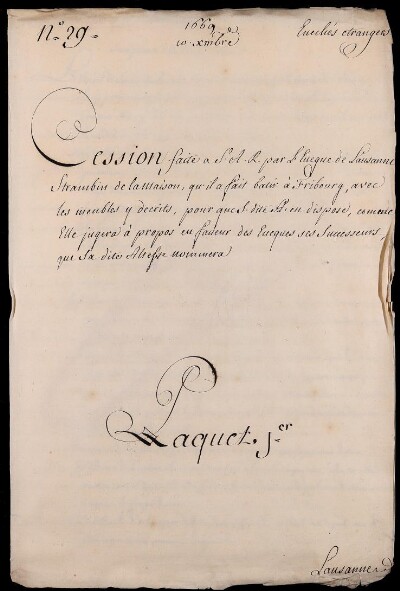 N.º 39.
1669
10 Xmbre
Evechés etrangers
Cession, faite a S. A. R. par L'Eveque de Lausanne
Strambin de la maison, qu'il a fait batir à Fribourg, avec
les meubles y decrits, pour que S. dite A. en dispose, comme
Elle jugera à propos en faveur des Eveques ses Successeurs,
que Sa dite Altesse nommera
Paquet. 1er
Lausanne